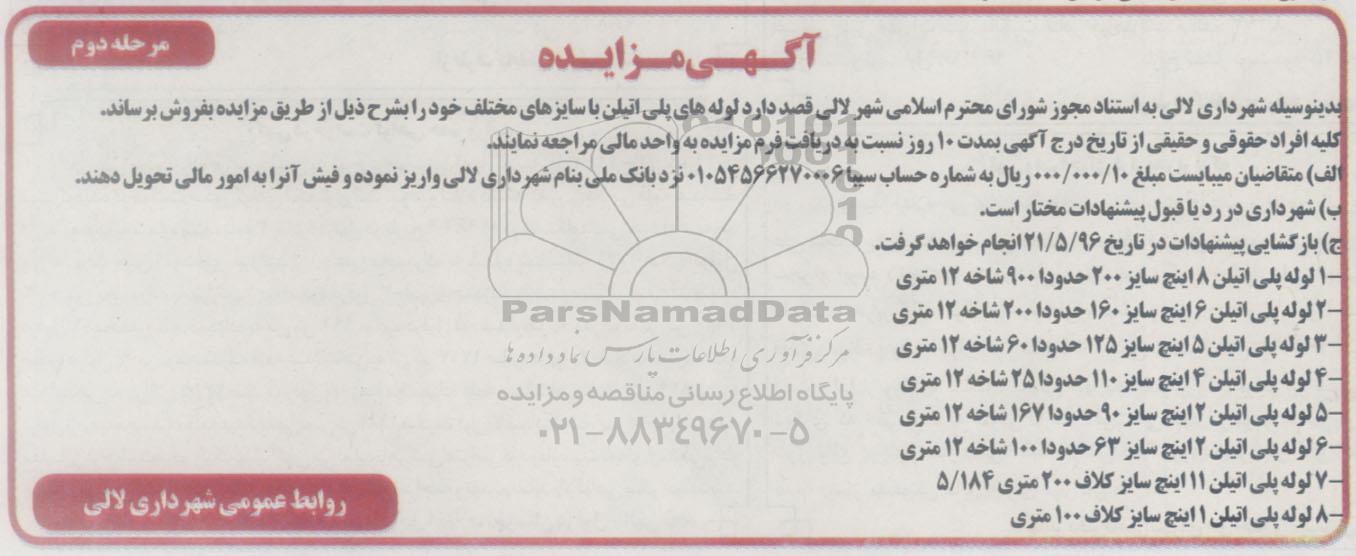 مرحله دوم
آگهی مزایده
بدینوسیله شهرداری لالی به استناد مجوز شورای محترم اسلامی شهر لالی قصد دارد لوله های پلی اتیلن با سایزهای مختلف خود را بشرح ذیل از طریق مزایده بفروش برساند.
کلیه افراد حقوقی و حقیقی از تاریخ درج آگهی بمدت ۱۰ روز نسبت به دریافت فرم مزایده به واحد مالی مراجعه نمایند.
الف) متقاضیان میبایست مبلغ ۰۰۰/۰۰۰/۱۰ ریال به شماره حساب سیبا ۰۱۰۵۴۵۶۶۲۷۰۰۰۶ نزد بانک ملی بنام شهرداری لالی واریز نموده و فیش آنرا به امور مالی تحویل دهند.
ب) شهرداری در رد یا قبول پیشنهادات مختار است.
ج) بازگشایی پیشنهادات در تاریخ ۲۱/۵/۹۶ انجام خواهد گرفت.
۱- لوله پلی اتیلن ۸ اینچ سایز ۲۰۰ حدودا ۹۰۰ شاخه ۱۲ متری
۲- لوله پلی اتیلن ۶ اینچ سایز ۱۶۰ حدودا ۲۰۰ شاخه ۱۲ متری
۳- لوله پلی اتیلن ۵ اینچ سایز ۱۲۵ حدودا ۶۰ شاخه ۱۲ متری
۴- لوله پلی اتیلن ۴ اینچ سایز ۱۱۰ حدودا ۲۵ شاخه ۱۲ متری
۵- لوله پلی اتیلن ۲ اینچ سایز ۹۰ حدودا ۱۶۷ شاخه ۱۲ متری
۶- لوله پلی اتیلن ۲ اینچ سایز ۶۳ حدودا ۱۰۰ شاخه ۱۲ متری
۷- لوله پلی اتیلن ۱۱ اینچ سایز کلاف ۲۰۰ متری ۵/۱۸۴
۸- لوله پلی اتیلن ۱ اینچ سایز کلاف ۱۰۰ متری
روابط عمومی شهرداری لالی
ParsNamadData
مرکز فرآوری اطلاعات پارس نماد داده ها
پایگاه اطلاع رسانی مناقصه و مزایده
۰۲۱-۸۸۳۴۹۶۷۰-۵